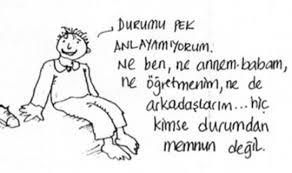 DURUMU PEK
ANLAYAMIYORUM.
Ne ben, ne annem-babam,
ne öğretmenim, ne de
arkadaşlarım...hiç
kimse durumdan
memnun değil.